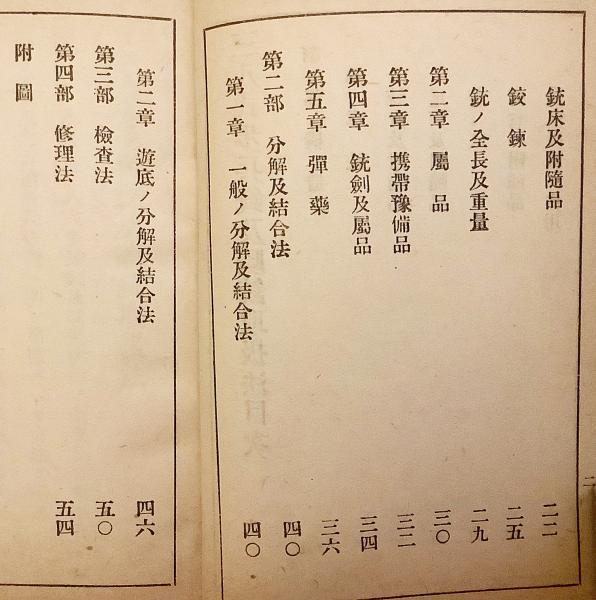 銃床及附隨品 二二
鉸鍊 二五
銃ノ全長及重量 二九
第二章 屬品 三〇
第三章 携帶豫備品 三二
第四章 銃劍及屬品 三四
第五章 彈藥 三六
第二部 分解及結合法 四〇
第一章 一般ノ分解及結合法 四〇
二
第二章 遊底ノ分解及結合法 四六
第三部 檢查法 五〇
第四部 修理法 五四
附圖